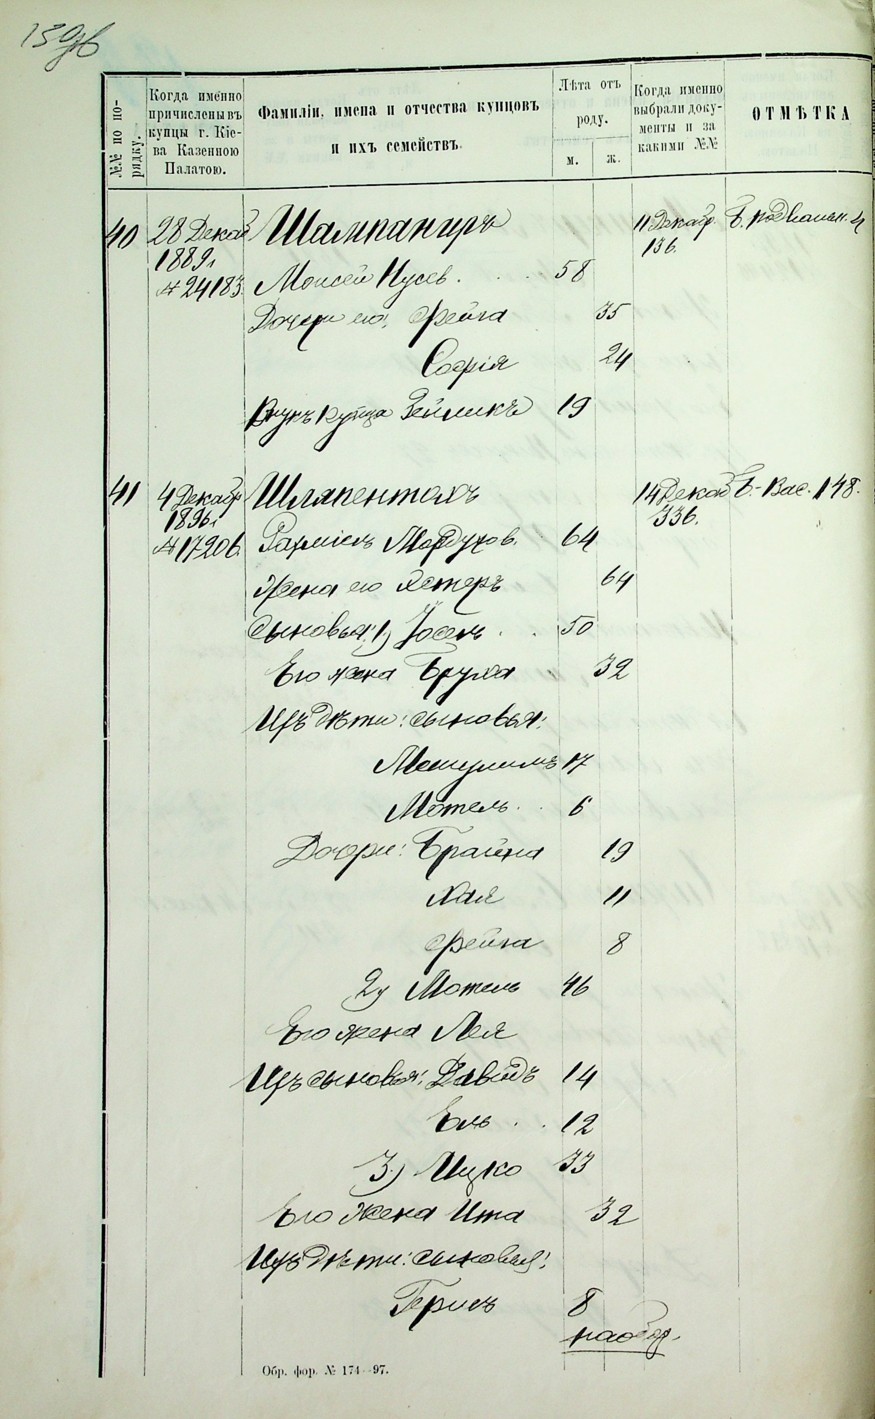 139об
№№ по порядку.
Когда именно причислены въ купцы г. Кіева Казенною Палатою.
Фамиліи, имена и отчества купцовъ и ихъ семействъ.
Лѣта отъ роду.
м. ж.
Когда именно выбрали документы и за какими №№
ОТМѢТКА
40 28 Декаб Шампаниръ 11 Декабр. Б. подвальн. 4
1889г 136.
№ 24183. Моисей Нусев. 58
Дочери его: Фейга 35
Софія 24
Внукъ купца Зейликъ 19
41 4 Декабр Шляпентохъ 14 Декаб Б.-Вас. 148.
1896г 336.
№ 17206. Рахміель Мордухов. 64
Жена его Эстеръ 64
Сыновья: 1) Іосель 50
Его жена Бруха 32
Ихъ дѣти: сыновья:
Мешулимъ 17
Мотель 6
Дочери: Брайна 19
Хая 11
Фейга 8
2) Мотель 46
Его жена Лея
Ихъ сыновья: Давидъ 14
Ель 12
3) Ицко 33
Его жена Ита 32
Ихъ дѣти: сыновья:
Герисъ 8
на обор.
Обр. фор. № 174—97.